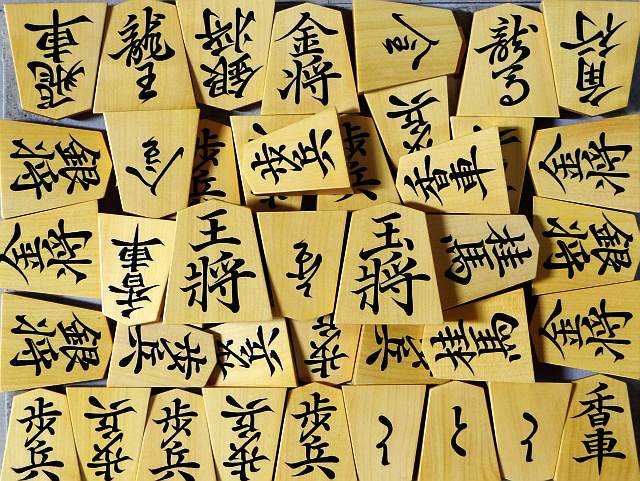 飛車
龍王
銀将
金将
龍馬
角行
銀将
歩兵
歩兵
歩兵
歩兵
香車
金将
金将
香車
王将
玉将
桂馬
銀将
銀将
歩兵
歩兵
歩兵
歩兵
桂馬
金将
歩兵
歩兵
歩兵
歩兵
歩兵
と
と
と
香車